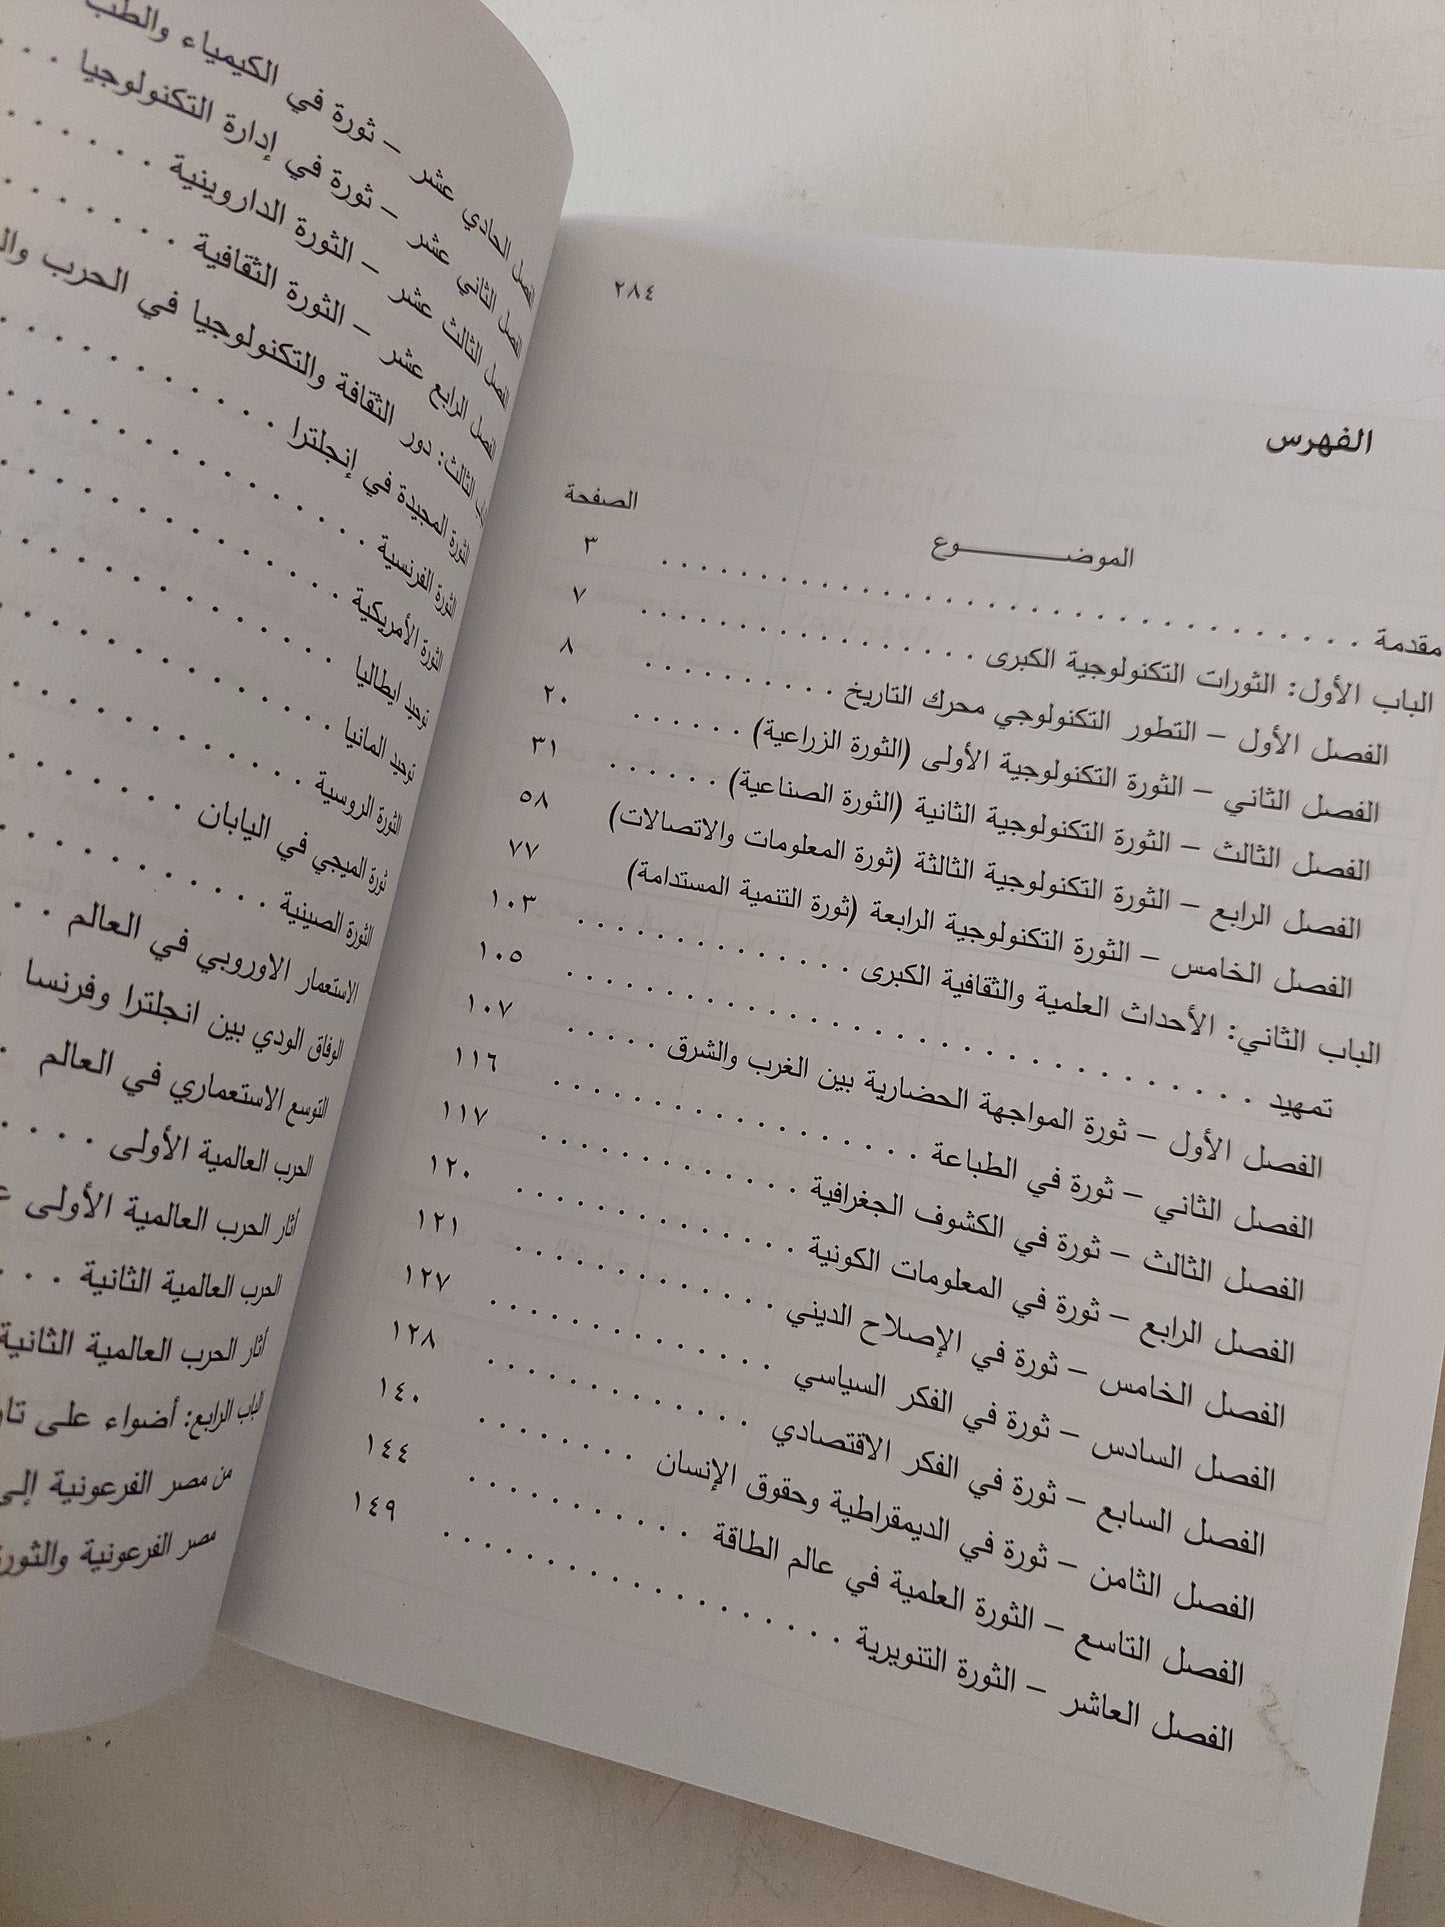 ٢٨٤
الفهرس
الموضـــــــوع الصفحة
مقدمة . . . . . . . . . . . . . . . . . . . . . . . . . . . . . . ٣
الباب الأول: الثورات التكنولوجية الكبرى . . . . . . . . . . . . . . . ٧
الفصل الأول – التطور التكنولوجي محرك التاريخ . . . . . . . . . . ٨
الفصل الثاني – الثورة التكنولوجية الأولى (الثورة الزراعية) . . . . . . ٢٠
الفصل الثالث – الثورة التكنولوجية الثانية (الثورة الصناعية) . . . . . . ٣١
الفصل الرابع – الثورة التكنولوجية الثالثة (ثورة المعلومات والاتصالات) ٥٨
الفصل الخامس – الثورة التكنولوجية الرابعة (ثورة التنمية المستدامة) ٧٧
الباب الثاني: الأحداث العلمية والثقافية الكبرى . . . . . . . . . . . . ١٠٣
تمهيد . . . . . . . . . . . . . . . . . . . . . . . . . . . . ١٠٥
الفصل الأول – ثورة المواجهة الحضارية بين الغرب والشرق . . . . . ١٠٧
الفصل الثاني – ثورة في الطباعة . . . . . . . . . . . . . . . . ١١٦
الفصل الثالث – ثورة في الكشوف الجغرافية . . . . . . . . . . . . ١١٧
الفصل الرابع – ثورة في المعلومات الكونية . . . . . . . . . . . . . ١٢٠
الفصل الخامس – ثورة في الإصلاح الديني . . . . . . . . . . . . ١٢١
الفصل السادس – ثورة في الفكر السياسي . . . . . . . . . . . . . ١٢٧
الفصل السابع – ثورة في الفكر الاقتصادي . . . . . . . . . . . . ١٢٨
الفصل الثامن – ثورة في الديمقراطية وحقوق الإنسان . . . . . . . . ١٤٠
الفصل التاسع – الثورة العلمية في عالم الطاقة . . . . . . . . . . ١٤٤
الفصل العاشر – الثورة التنويرية . . . . . . . . . . . . . . . . . ١٤٩
الفصل الحادي عشر – ثورة في الكيمياء والطب
الفصل الثاني عشر – ثورة في إدارة التكنولوجيا . . .
الفصل الثالث عشر – الثورة الداروينية . . . . . .
الفصل الرابع عشر – الثورة الثقافية . . . . . . .
الثالث: دور الثقافة والتكنولوجيا في الحرب
الثورة المجيدة في إنجلترا . . . . . . . . . .
الثورة الفرنسية . . . . . . . . . . . . .
الثورة الأمريكية . . . . . . . . . . . .
توحيد ايطاليا . . . . . . . . . . . .
توحيد المانيا . . . . . . . . . . . .
الثورة الروسية . . . . . . . . . . . .
ثورة الميجي في اليابان . . . . . . .
الثورة الصينية . . . . . . . . . .
الاستعمار الاوروبي في العالم . .
الوفاق الودي بين انجلترا وفرنسا
التوسع الاستعماري في العالم .
الحرب العالمية الأولى . . . .
أثار الحرب العالمية الأولى
الحرب العالمية الثانية . . .
أثار الحرب العالمية الثانية
الباب الرابع: أضواء على
من مصر الفرعونية إلى
مصر الفرعونية والثورة